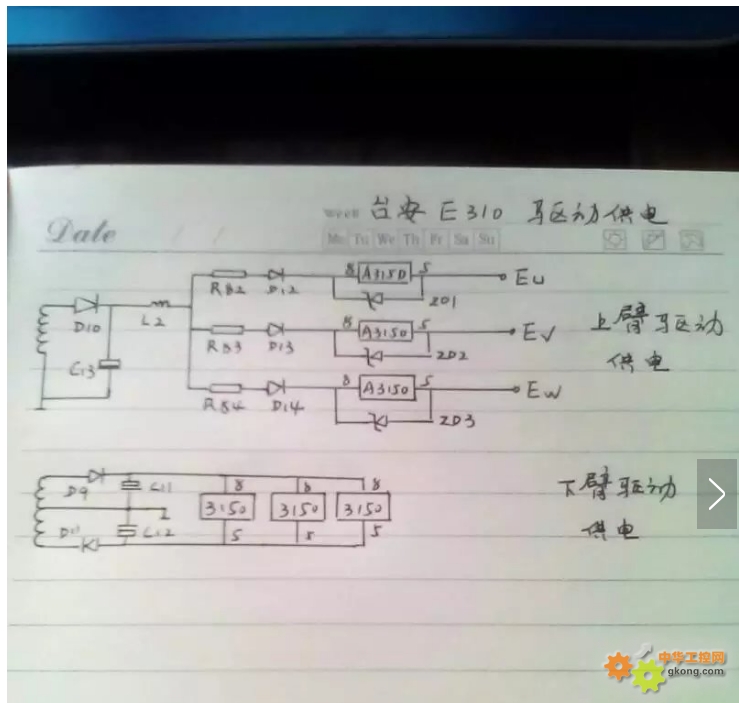 week 台安 E310 驱动供电
Date
Mo Tu We Th Fr Sa Su
8 A3150 5 Eu
R82 D12 ZD1
D10 L2
8 A3150 5 Ev 上臂驱动
R83 D13 ZD2 供电
C13
8 A3150 5 Ew
R84 D14 ZD3
D9 C11 8 8 8 下臂驱动
3150 3150 3150
D11 C12 5 5 5 供电
中华工控网
gkong.com